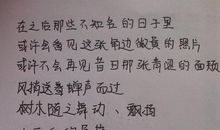 在之后那些不知名的日子里
或许会看见这张角边微黄的照片
或许不会再见昔日那张青涩的面颊
风捎送着蝉声而过
树木随之舞动、飘摇